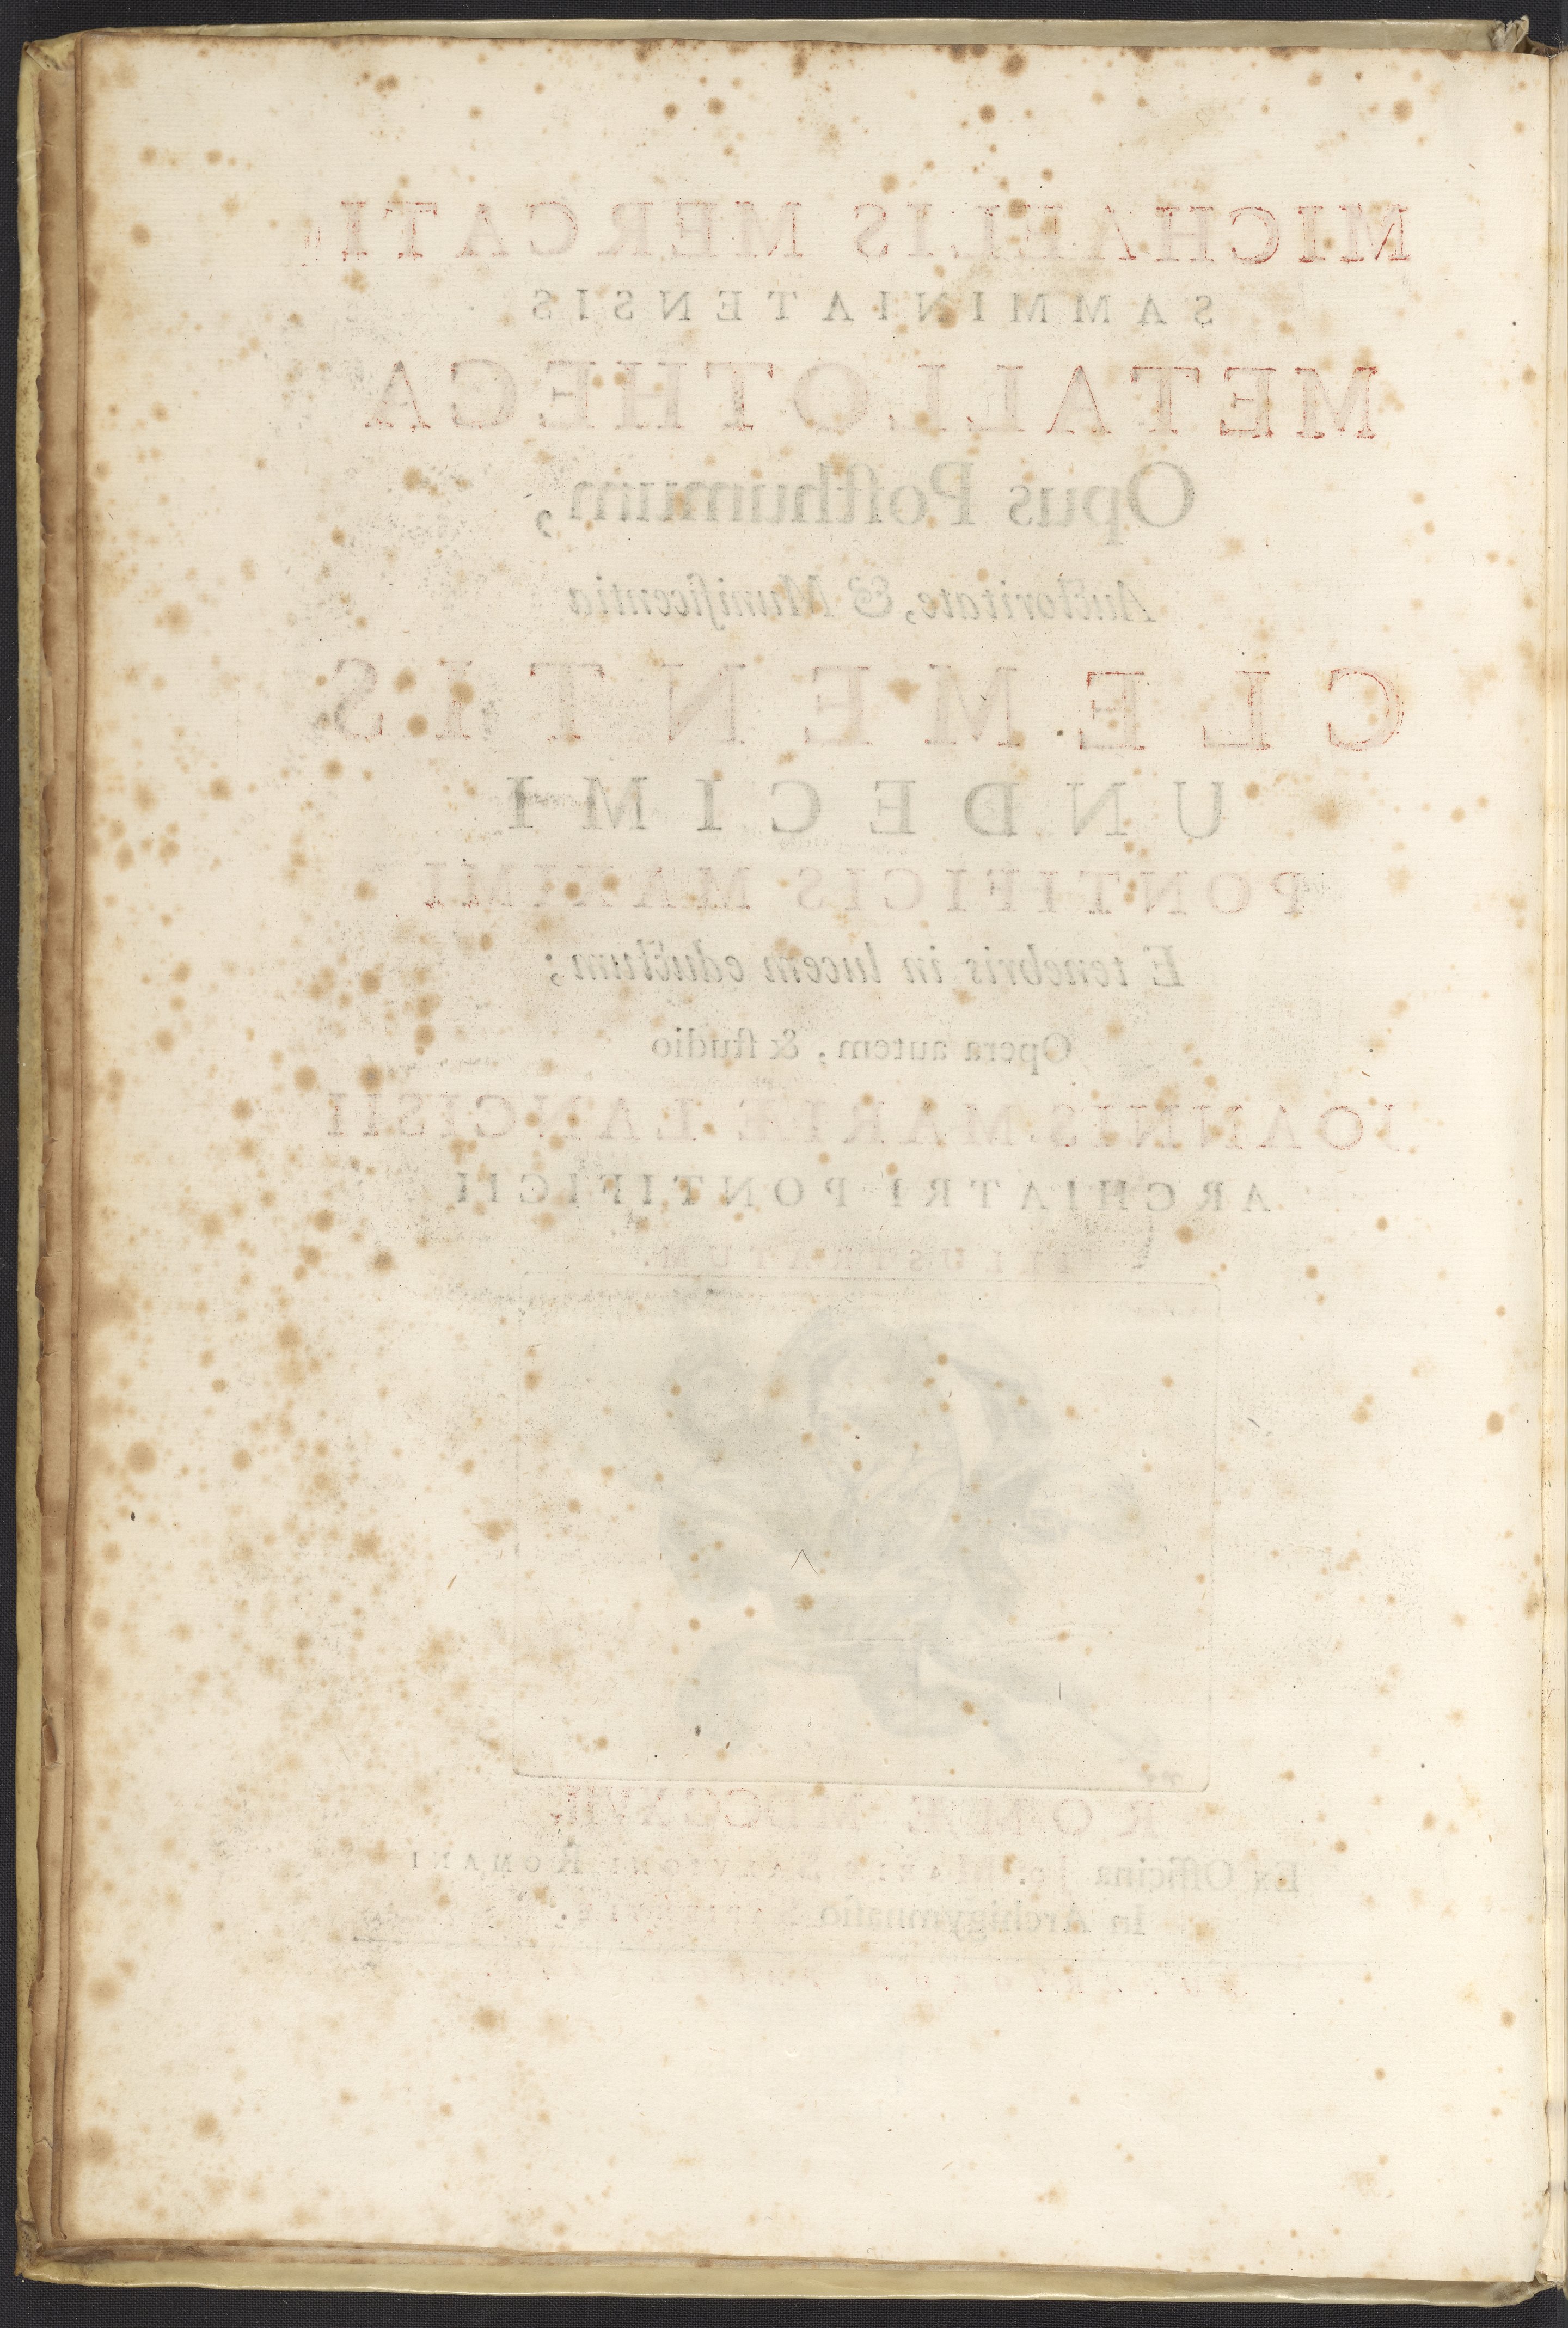 MICHAELIS MERCATI
SAMMINIATENSIS
METALLOTHECA
Opus Poſthumum,
Auctoritate, & Munificentia
CLEMENTIS
UNDECIMI
PONTIFICIS MAXIMI
E tenebris in lucem eductum;
Opera autem, & ſtudio
JOANNIS MARIÆ LANCISII
ARCHIATRI PONTIFICII
ILLUSTRATUM.
ROMÆ MDCCXVII.
Ex Officina Jo: MARIÆ SALVIONI ROMANI
In Archigymnaſio SAPIENTIÆ.